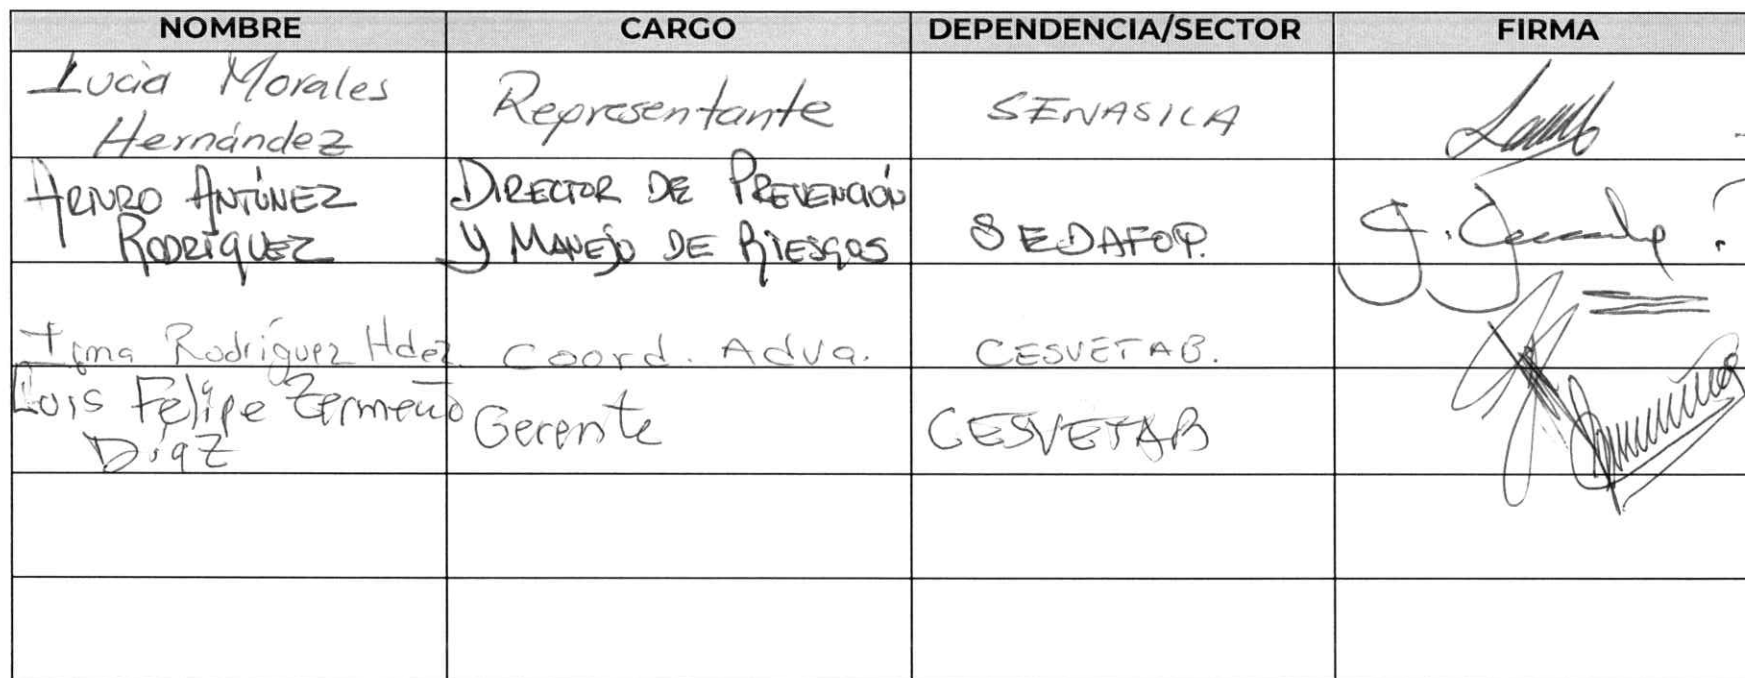 NOMBRE CARGO DEPENDENCIA/SECTOR FIRMA
Lucia Morales
Hernández
Representante
SENASICA
ARTURO ANTÚNEZ
RODRÍGUEZ
DIRECTOR DE PREVENCIÓN
Y MANEJO DE RIESGOS
SEDAFOP.
Rodríguez Hdez
Coord. Adva.
CESVETAB.
Luis Felipe Zermeño
Díaz
Gerente
CESVETAB